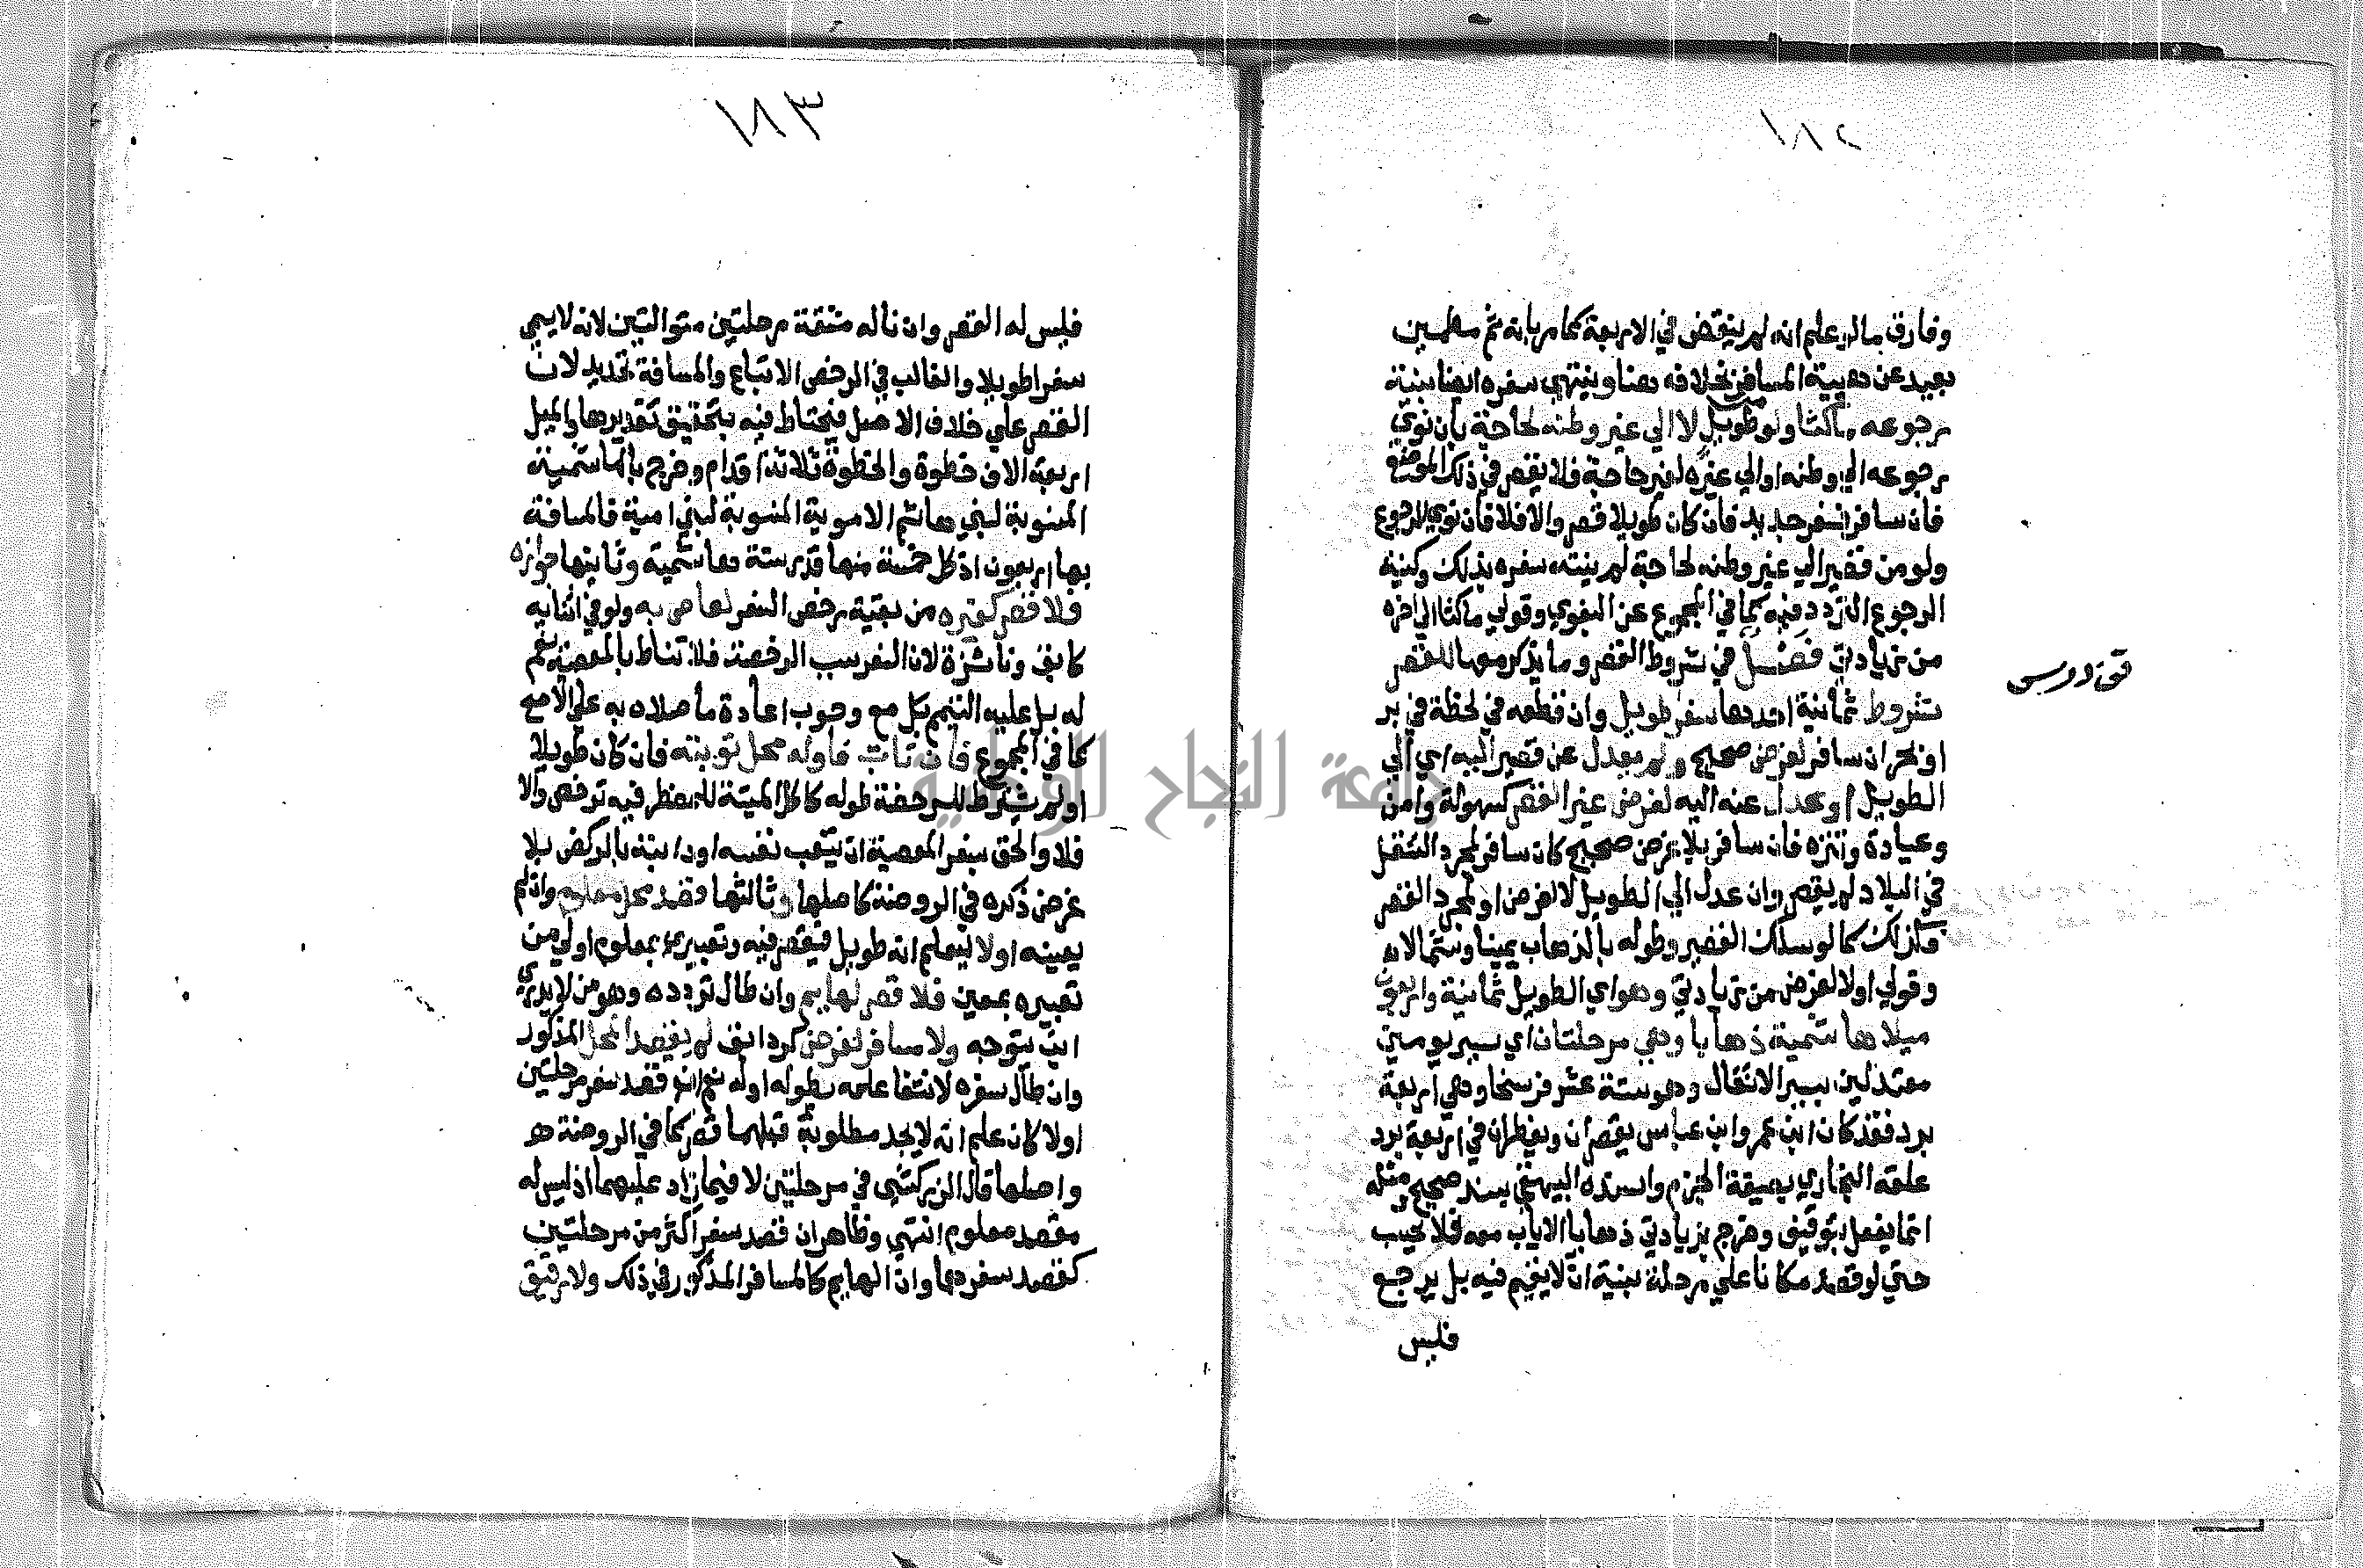 ١٨٢
وفارق مالو علم انه لم ينقض في الاربعة كما مر بانه ثم مطمين
بعيد عن هيية المسافر بخلافه هنا وينتهي سفره ايضا بنية
رجوعه ماكثا ولو طويل لا الي غير وطنه لحاجة بان نوي
رجوعه الي وطنه او الي غيره لغير حاجة فلا يقصر في ذلك الموضع
فان سافر فسفر جديد فان كان طويلا قصر والا فلا فان نوي الرجوع
ولو من قصير الي غير وطنه لحاجة لم ينته سفره بذلك وكنية
الرجوع التردد فيه كما في المجموع عن البغوي وقولي ماكثا الي اخره
من زيادتي فصل في شروط القصر وما يذكر معها للقصر
شروط ثمانية احدها سفر طويل وان قطعه في لحظة في بر
او بحر ان سافر لغرض صحيح ولم يعدل عن قصير اليه اي الي
الطويل او عدل عنه اليه لغرض غير القصر كسهولة وامن
وعيادة وتنزه فان سافر بلا غرض صحيح كان سافر لمجرد التنقل
في البلاد لم يقصر وان عدل الي الطويل لا لغرض او لمجرد القصر
فكذلك كما لو سلك القصير وطوله بالذهاب يمينا وشمالا
وقولي اولا لغرض من زيادتي وهو اي الطويل ثمانية واربعون
ميلا هاشمية ذهابا وهي مرحلتان اي سير يومين
معتدلين بسير الاثقال وهو ستة عشر فرسخا وهي اربعة
برد فقد كان ابن عمر وابن عباس يقصران ويفطران في اربعة برد
علقه البخاري بصيغة الجزم واسنده البيهقي بسند صحيح ومثله
انما يفعل بتوقيف وخرج بزيادتي ذهابا الاياب معه فلا يحسب
حتي لو قصد مكانا علي مرحلة بنية ان لا يقيم فيه بل يرجع
فليس
١٨٣
فليس له القصر وان ناله مشقة مرحلتين متواليتين لانه لا يسمي
سفرا طويلا والغالب في الرخص الاتباع والمسافة تحديد لان
القصر علي خلاف الاصل فيحتاط فيه بتحقيق تقديرها والميل
اربعة الاف خطوة والخطوة ثلاثة اقدام وخرج بالهاشمية
المنسوبة لبني هاشم الاموية المنسوبة لبني امية فالمسافة
بها اربعون اذ كل خمسة منها قدر ستة هاشمية وثانيها جوازه
فلا قصر كغيره من بقية رخص السفر لعاص به ولو في اثنايه
كابق وناشزة لان السفر سبب الرخصة فلا تناط بالمعصية نعم
له بل عليه التيمم بكل مع وجوب اعادة ما صلاه به علي الاصح
كما في المجموع فان تاب فاوله محل توبته فان كان طويلا
او لم يشترط للرخصة طوله كاكل الميتة للمضطر فيه ترخص والا
فلا والحق بسفر المعصية ان يتعب نفسه او دابته بالركض بلا
غرض ذكره في الروضة كاصلها وثالثها قصد محل معلوم وان لم
يعينه اولا ليعلم انه طويل فيقصر فيه وتعبيري بمعلوم اولي من
تعبيره بمعين فلا قصر لهايم وان طال تردده وهو من لا يدري
اين يتوجه ولا مسافر لغرض كرد ابق لم يقصد المحل المذكور
وان طال سفره لانتفا علمه بطوله اوله نعم ان قصد سفر مرحلتين
اولا كان علم انه لا يجد مطلوبه قبلهما قصر كما في الروضة
واصلها قال الزركشي في مرحلتين لا فيما زاد عليهما اذ ليس له
مقصد معلوم انتهي وظاهر ان قصد سفر اكثر من مرحلتين
كقصد سفرهما وان الهايم كالمسافر المذكور في ذلك ولا رقيق
جامعة النجاح الوطنية